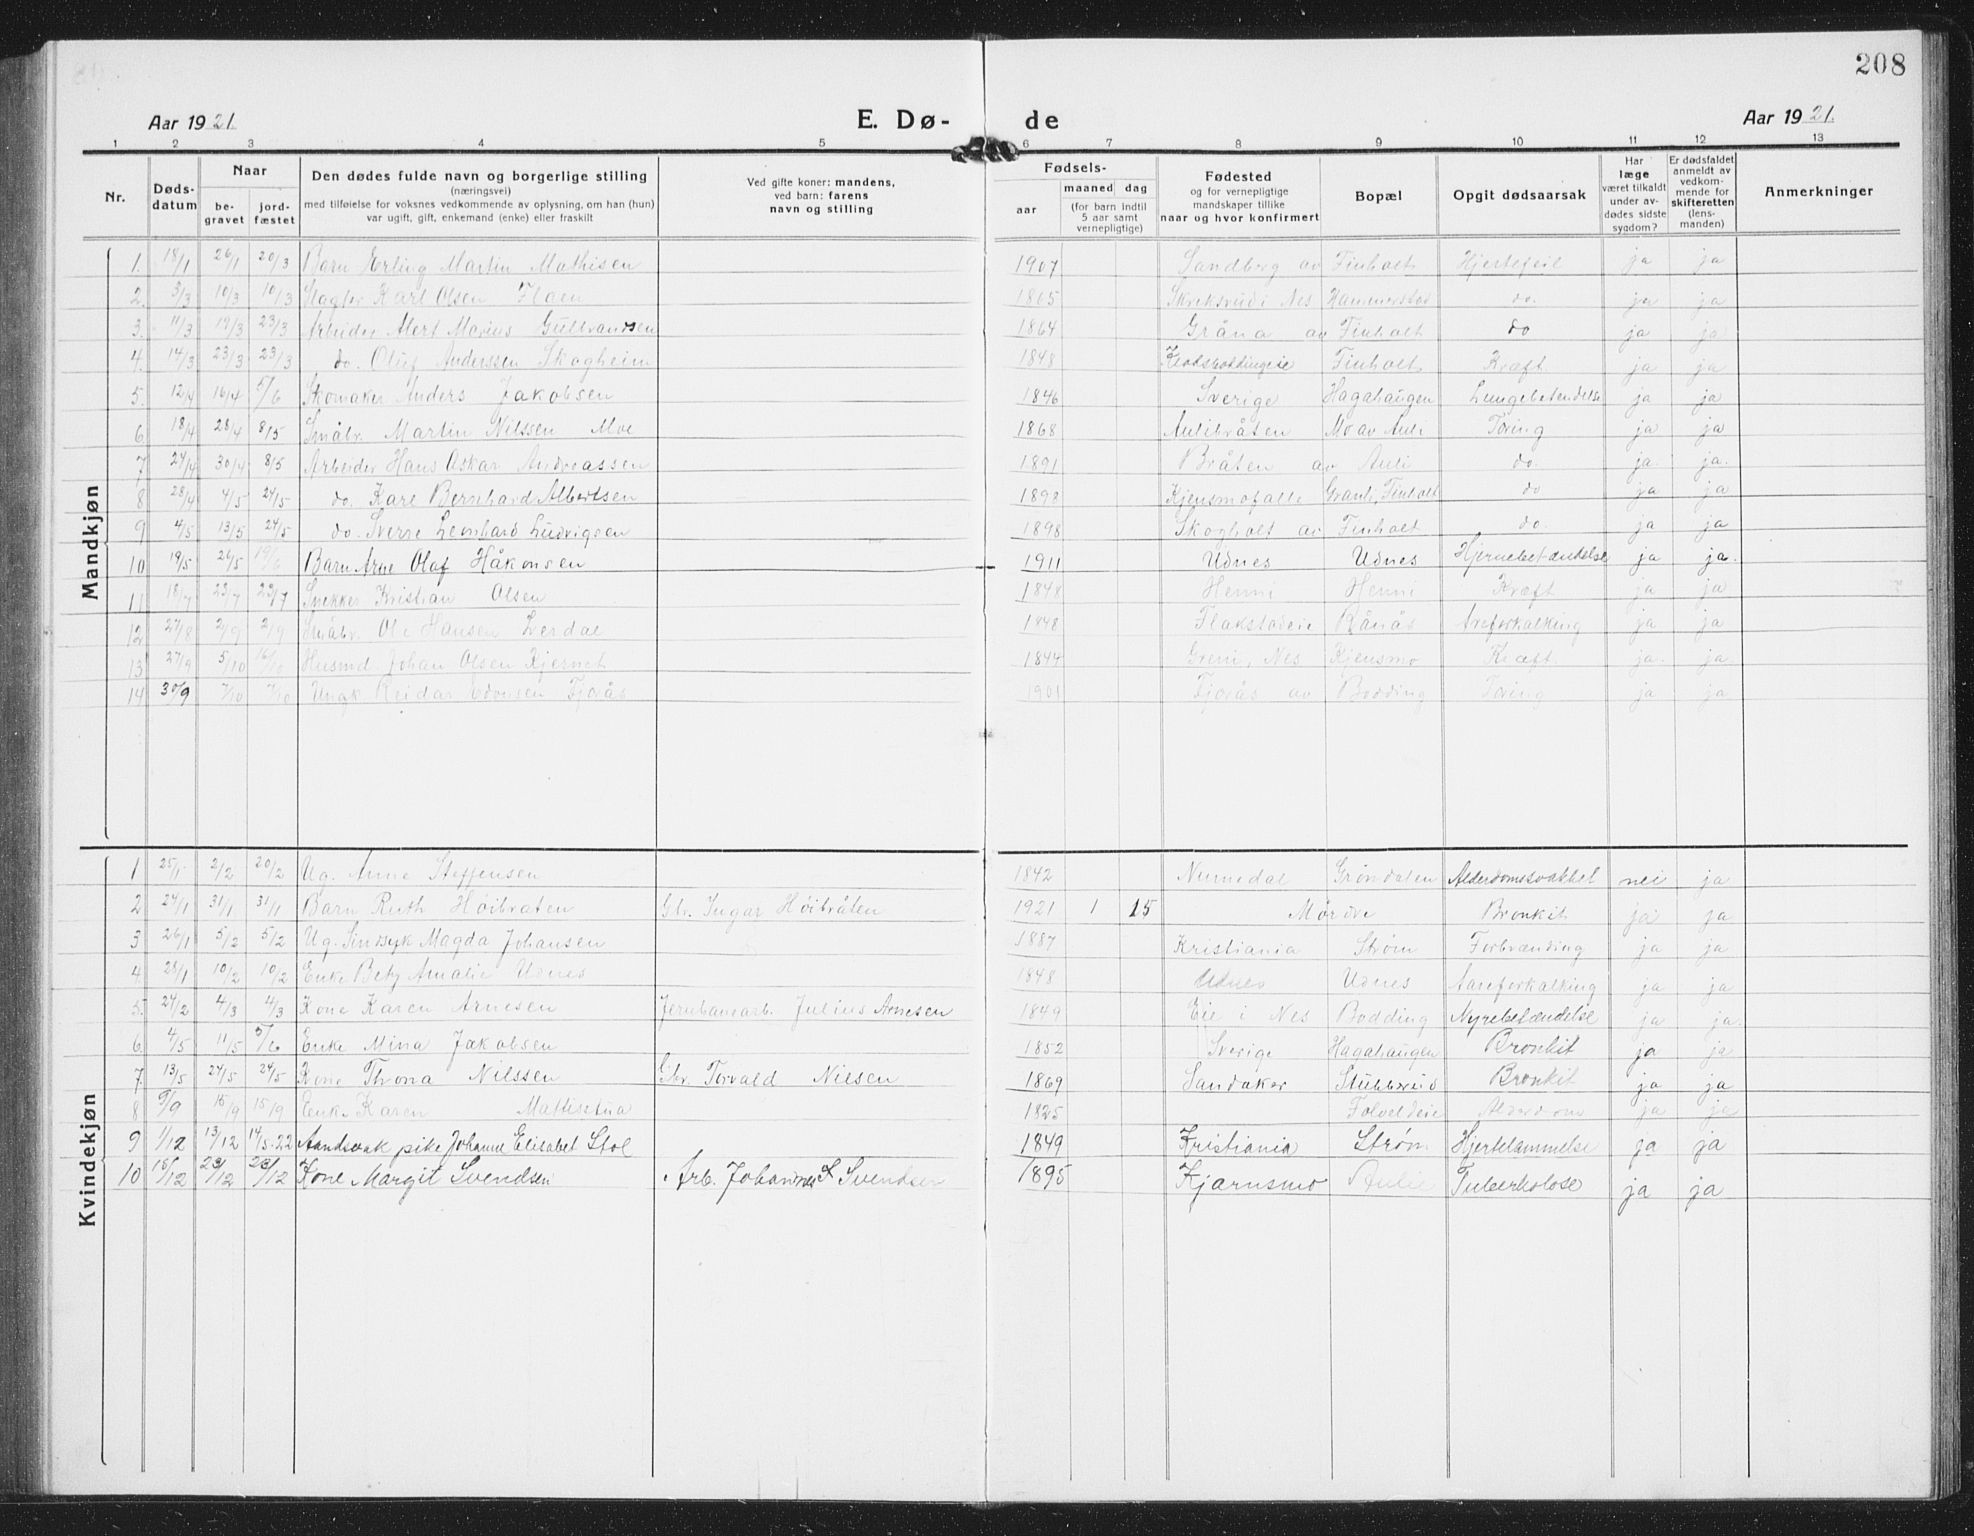 208
Aar 1921.
E. Dø-
de
Aar 1921.
1 2 3 4 5 6 7 8 9 10 11 12 13
Nr.
Døds-
datum
Naar
be-
gravet
jord-
fæstet
Den dødes fulde navn og borgerlige stilling
(næringsvei)
med tilføielse for voksnes vedkommende av oplysning, om han (hun)
var ugift, gift, enkemand (enke) eller fraskilt
Ved gifte koner: mandens,
ved barn: farens
navn og stilling
Fødsels-
aar
maaned dag
(for barn indtil
5 aar samt
vernepligtige)
Fødested
og for vernepligtige
mandskaper tillike
naar og hvor konfirmert
Bopæl
Opgit dødsaarsak
Har
læge
været tilkaldt
under av-
dødes sidste
sygdom?
Er dødsfaldet
anmeldt av
vedkom-
mende for
skifteretten
(lens-
manden)
Anmerkninger
Mandkjøn
1. 18/1 26/1 20/3 Barn Erling Martin Mathisen 1907 Sandberg av Finholt Hjertefeil ja ja
2. 3/3 10/3 10/3 Karl Olsen Flaen 1865 i Nes do. ja ja
3. 11/3 19/3 23/3 Arbeider Marius Gulbrandsen 1864 Gråna av Finholt do ja ja
4. 14/3 23/3 23/3 do. Oluf Anderssen Skogheim 1848 Finholt Kræft ja ja
5. 12/4 16/4 5/6 Skomaker Anders Jakobsen 1846 Sverige Hagahaugen Lungebetendelse ja ja
6 18/4 28/4 8/5 Småbr. Martin Nilssen Moe 1868 Aulibråten Mo av Auli Tæring ja ja
7 24/4 30/4 8/5 Arbeider Hans Oskar Andreassen 1891 Bråten av Auli do. ja. ja.
8 28/4 4/5 24/5 do. Kare Bernhard Albertsen 1898 Finholt do ja ja
9 4/5 13/5 24/5 do. Sverre Leonhard Ludvigsen 1898 Skogholt av Finholt do. ja ja
10 19/5 26/5 19/6 Barn Arne Olaf Håkonsen 1911 Udnes Udnes Hjernebetændelse ja ja.
11 18/7 23/7 23/7 Snekker Kristian Olsen 1848 Henni Henni Kræft ja ja
12 27/8 2/9 2/9 Småbr. Ole Hansen Lerdal 1848 Flakstadeie Rånås Areforkalking ja ja
13 27/9 5/10 16/10 Husmd Johan Olsen 1844 Greni, Nes Kjensmo Kræft. ja. ja.
14 30/9 7/10 7/10 Ungk Reidar Fjorås 1901 Fjorås av Bodding Tæring ja ja
Kvindekjøn
1 25/1 2/2 20/2 Ug. Anne Steffensen 1842 Numedal Grøndalen Alderdomssvakhet nei ja
2 24/1 31/1 31/1 Barn Ruth Høibraten Gbr. Ingar Høibråten 1921 1 15 Mårdre Bronkit ja ja
3 26/1 5/2 5/2 Ug. Sindsyk Magda Johansen 1887 Kristiania Strøm Forbrænding ja ja
4. 28/1 10/2 10/2 Enke Amalie Udnes 1848 Udnes Udnes Aareforkalking ja ja
5. 24/2 4/3 4/3 Kone Karen Arnesen Jernbanearb. Julius Arnesen 1849 Eie i Nes Bodding Nyrebetændelse ja ja.
6. 4/5 11/5 5/6 Enke Mina Jakobsen 1852 Sverige Hagahaugen Bronkit ja ja
7. 13/5 24/5 24/5 Kone Throna Nilssen Gbr. Torvald Nilsen 1869 Sandaker Stubbreid Bronkit ja ja
8 9/9 15/9 15/9 Enke Karen Mattisstua 1825 Folveldeie Alderdom ja ja
9 1/12 13/12 14/5-22 Aandsvak pike Johanne Elisabet Stol 1849 Kristiania Strøm Hjertelammelse ja ja
10 15/12 23/12 23/12 Kone Margit Svendsen Arb. Johannes L Svendsen 1895 Kjærnsmo Aulie Tuberkolose ja ja